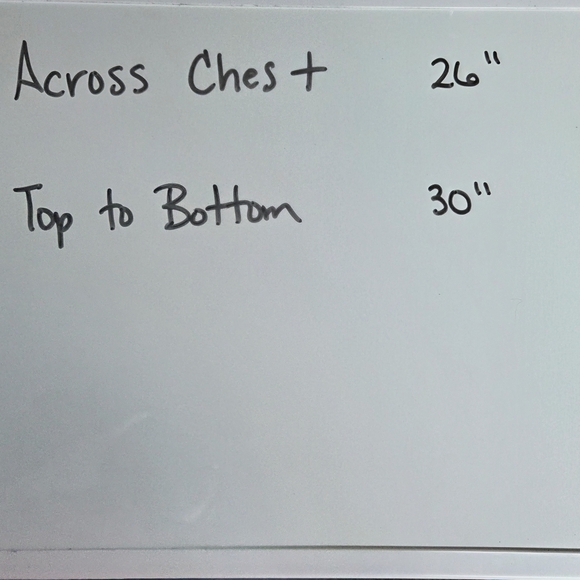 Across Chest 26"
Top to Bottom 30"